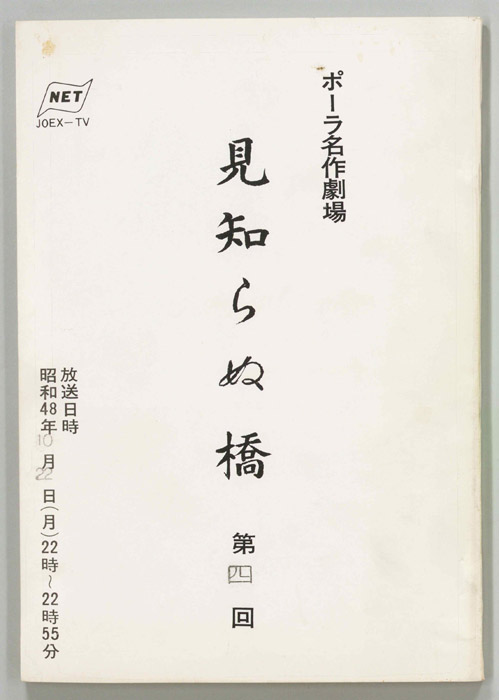 ポーラ名作劇場
見知らぬ橋
第四回
NET
JOEX-TV
放送日時
昭和48年10月22日(月)22時~22時55分